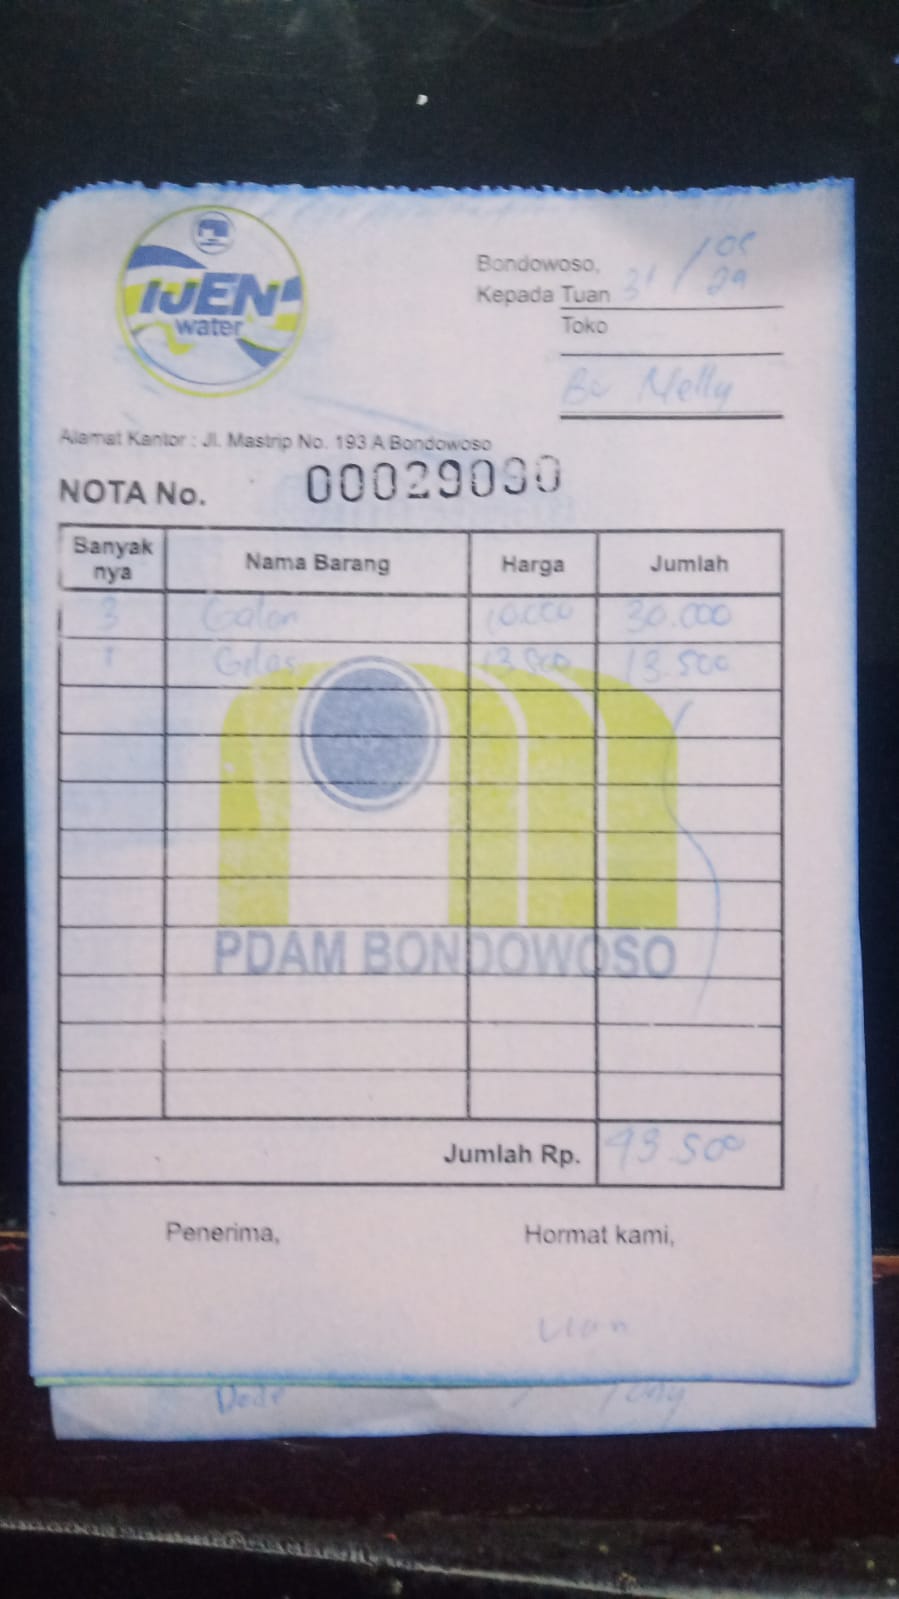 IJEN
water
Bondowoso,
31 / 05
Kepada Tuan
Toko
Bu Nelly
Alamat Kantor : Jl. Mastrip No. 193 A Bondowoso
NOTA No. 00029090
Banyak nya Nama Barang Harga Jumlah
3 Galon 10.000 30.000
1 Gelas 13.500 13.500
PDAM BONDOWOSO
Jumlah Rp. 43.500
Penerima, Hormat kami,
Dede